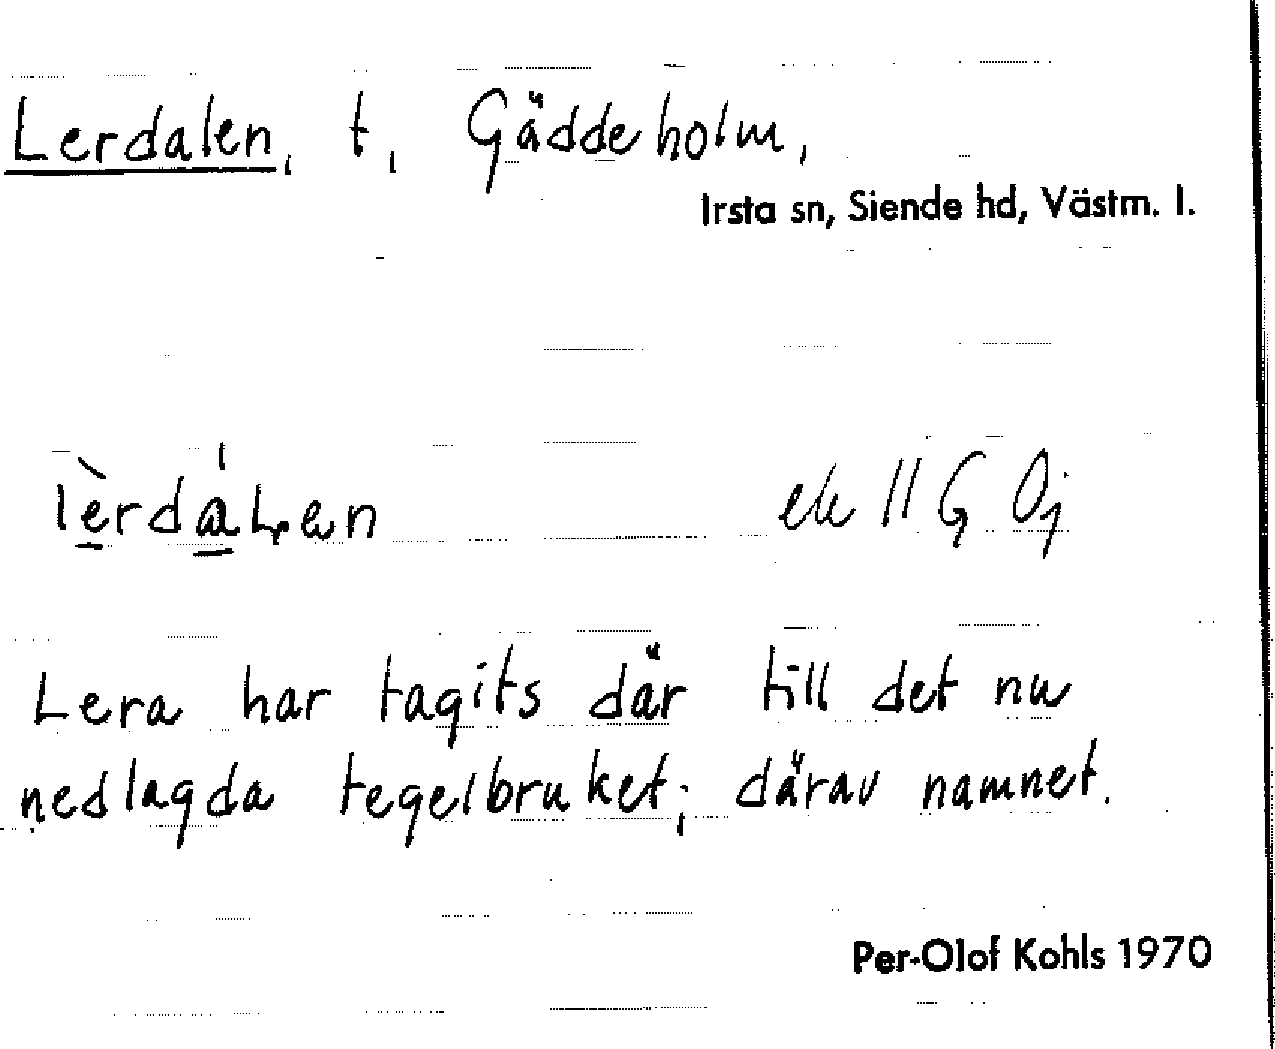 Lerdalen, t, Gäddeholm,
Irsta sn, Siende hd, Västm. l.
ek 11 G Oj
Lera har tagits där till det nu
nedlagda tegelbruket; därav namnet.
Per-Olof Kohls 1970